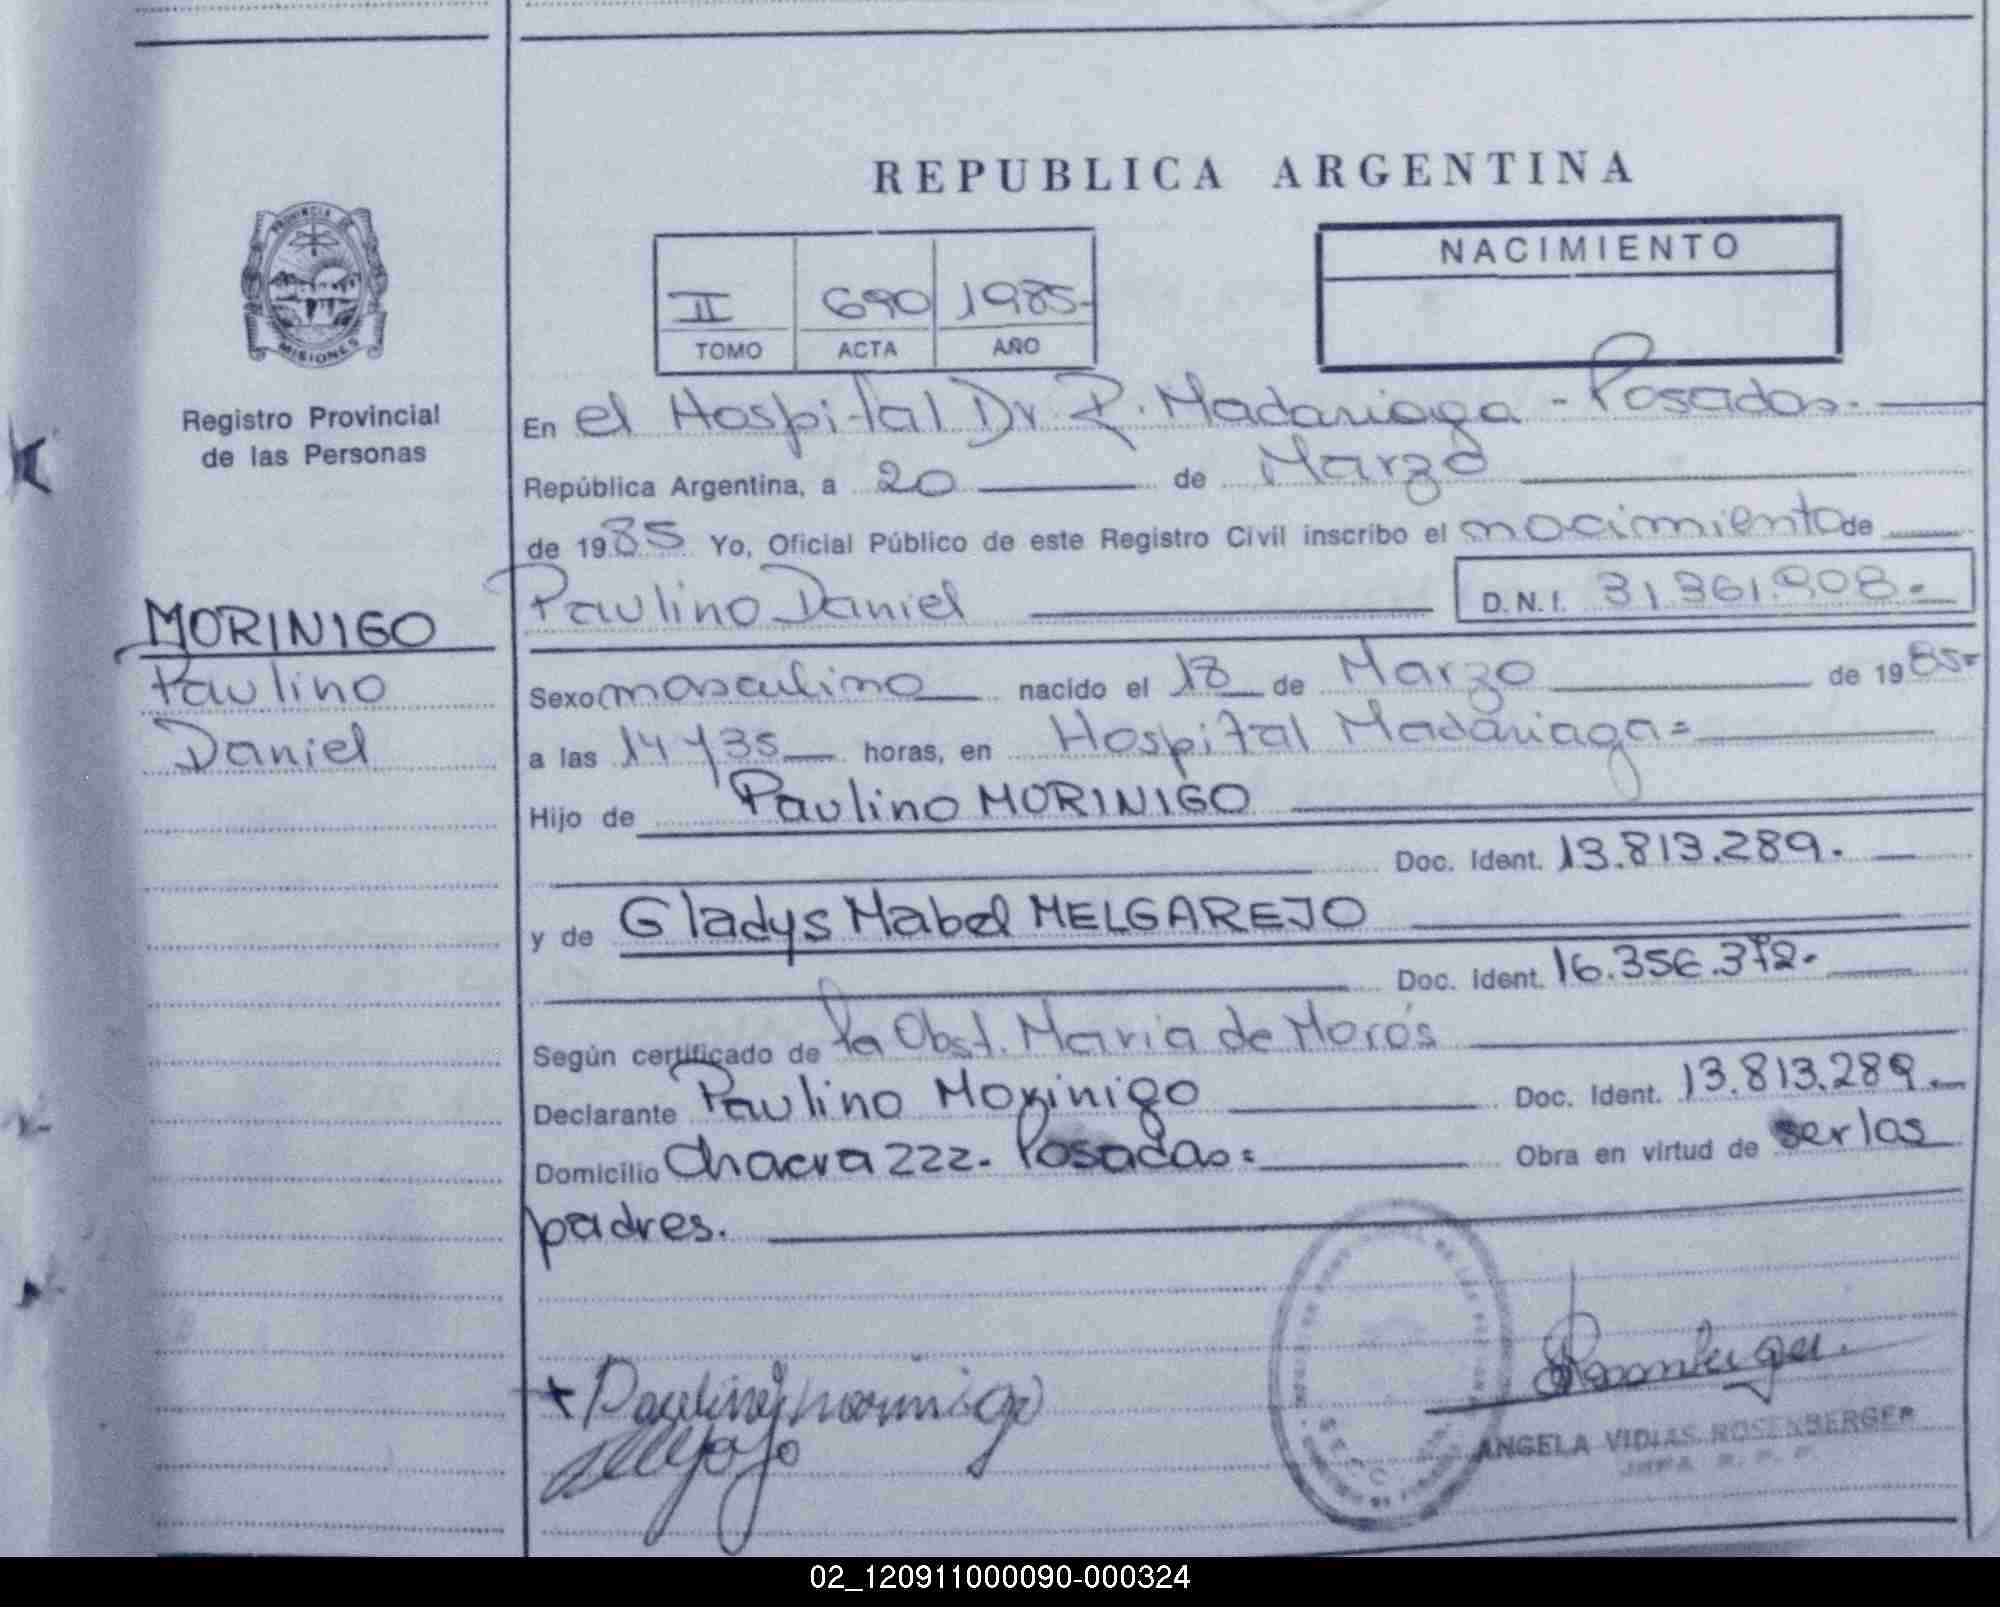 REPUBLICA ARGENTINA
PROVINCIA DE
MISIONES
Registro Provincial
de las Personas
II 690 1985-
TOMO ACTA AÑO
NACIMIENTO
En el Hospital Dr R. Madariaga - Posadas.
República Argentina, a 20 de Marzo
de 1985 Yo, Oficial Público de este Registro Civil inscribo el nacimiento de
Paulino Daniel D.N.I. 31.361.908.-
MORINIGO
Paulino
Daniel
Sexo masculino nacido el 18 de Marzo de 1985=
a las 14 y 35 horas, en Hospital Madariaga=
Hijo de Paulino MORINIGO
Doc. Ident. 13.813.289.
y de Gladys Mabel MELGAREJO
Doc. Ident. 16.356.372.
Según certificado de la Obst. Maria de Morós
Declarante Paulino Morinigo Doc. Ident. 13.813.289.
Domicilio Chacra 222. Posadas= Obra en virtud de ser los
padres.
ANGELA VIDIAS ROSENBERGER
02_120911000090-000324